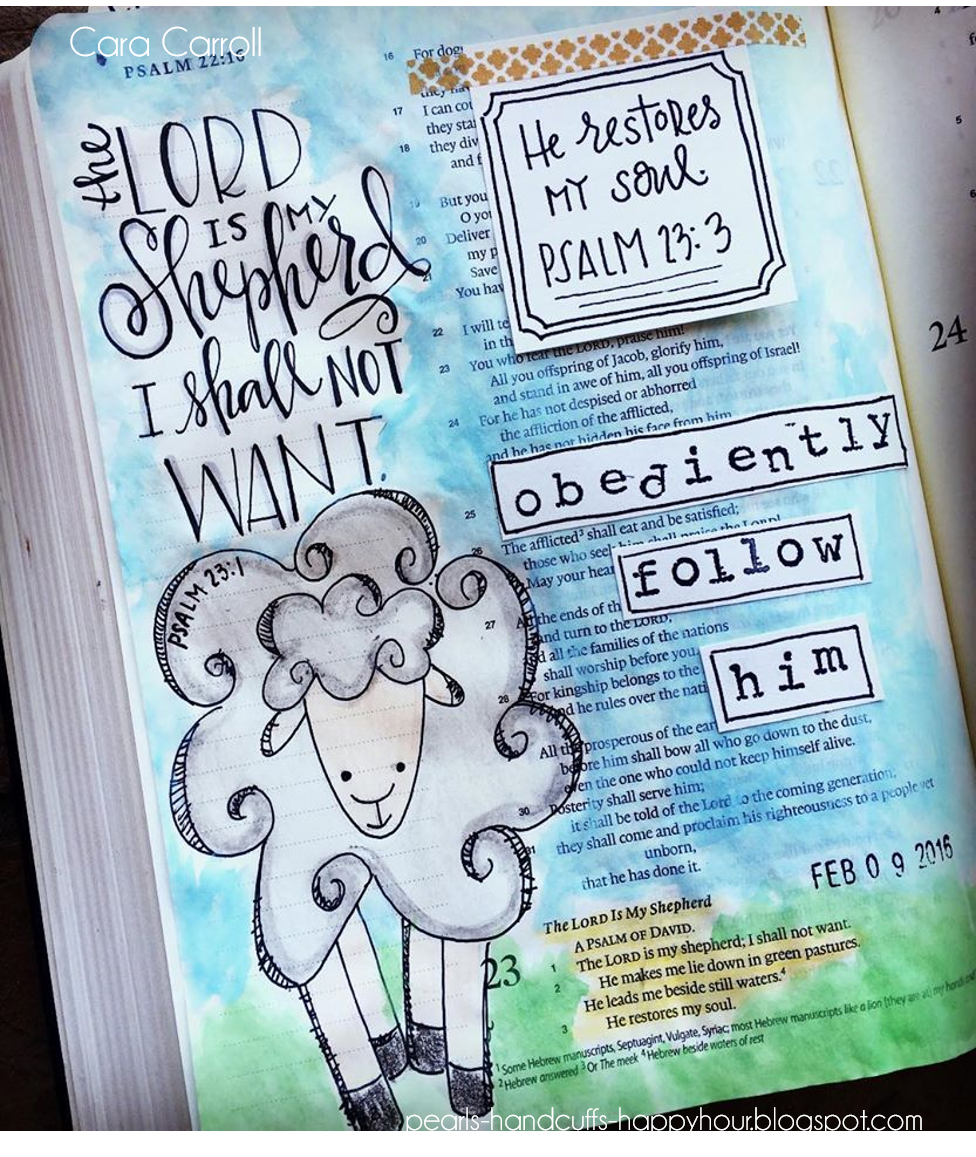 Cara Carroll
PSALM 22:16
the LORD
IS MY
Shepherd
I shall NOT
WANT.
PSALM 23:1
16 For dogs
they ha
17 I can cou
they sta
18 they div
and f
19 But you
O yo
20 Deliver
my p
21 Save
You hav
22 I will te
in th
You who fear the LORD, praise him!
23 All you offspring of Jacob, glorify him,
and stand in awe of him, all you offspring of Israel!
24 For he has not despised or abhorred
the affliction of the afflicted,
and he has not hidden his face from him
He restores
MY soul.
PSALM 23:3
obediently
25
26 The afflicted³ shall eat and be satisfied;
those who seek him shall praise the LORD!
May your hear
follow
27 All the ends of th
and turn to the LORD,
and all the families of the nations
shall worship before you.
28 For kingship belongs to the
and he rules over the nati
him
All the prosperous of the ear
before him shall bow all who go down to the dust,
even the one who could not keep himself alive.
30 Posterity shall serve him;
it shall be told of the Lord to the coming generation;
31 they shall come and proclaim his righteousness to a people yet
unborn,
that he has done it.
FEB 09 2016
The LORD Is My Shepherd
A PSALM OF DAVID.
23 1 The LORD is my shepherd; I shall not want.
2 He makes me lie down in green pastures.
He leads me beside still waters.⁴
3 He restores my soul.
¹ Some Hebrew manuscripts, Septuagint, Vulgate, Syriac; most Hebrew manuscripts like a lion [they are at] my hands
² Hebrew answered ³ Or The meek ⁴ Hebrew beside waters of rest
24
4
5
6
pearls-handcuffs-happyhour.blogspot.com